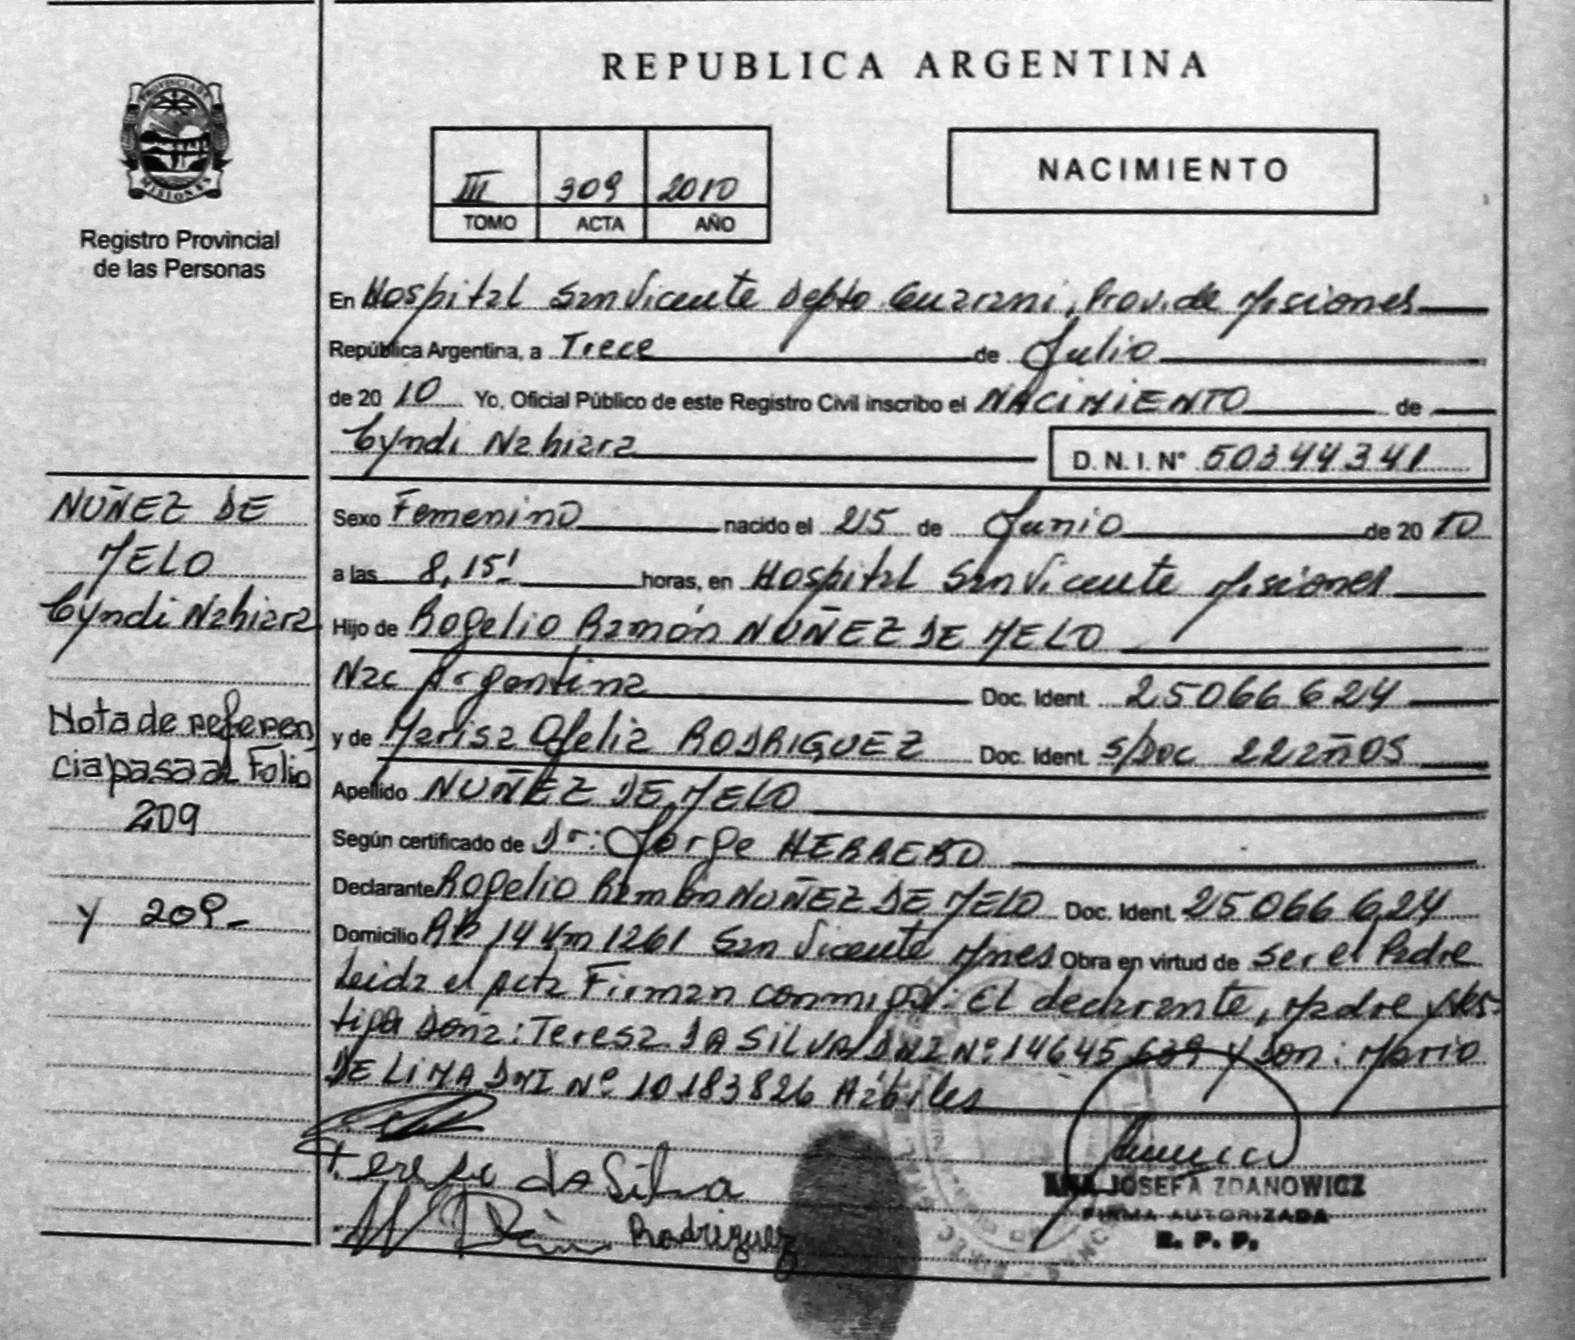 REPUBLICA ARGENTINA
PROVINCIA DE MISIONES
Registro Provincial
de las Personas
III 309 2010
TOMO ACTA AÑO
NACIMIENTO
En Hospital San Vicente Depto Guarani, Prov. de Misiones
República Argentina, a Trece de Julio
de 20 10 Yo, Oficial Público de este Registro Civil inscribo el NACIMIENTO de
Cyndi Nahiara D. N. I. N° 50344341
Sexo Femenino nacido el 25 de Junio de 20 10
a las 8,15' horas, en Hospital San Vicente Misiones
Hijo de Rogelio Ramón NUÑEZ DE MELO
Nac Argentina Doc. Ident. 25066624
y de Marisa Ofelia RODRIGUEZ Doc. Ident. S/Doc 22 años
Apellido NUÑEZ DE MELO
Según certificado de Dr: Jorge HERRERO
Declarante Rogelio Ramón NUÑEZ DE MELO Doc. Ident. 25066624
Domicilio RN 14 Km 1261 San Vicente Mnes Obra en virtud de ser el Padre
Leida el Acta Firman conmigo: El declarante, Madre y tes-
tigo Doña: Teresa DA SILVA DNI Nº 14645639 y Don: Mario
DE LIMA DNI Nº 10183826 Habiles
Teresa da Silva
Rodriguez
ANA JOSEFA ZDANOWICZ
FIRMA AUTORIZADA
R. P. P.
NUÑEZ DE
MELO
Cyndi Nahiara
Nota de referen
cia pasa al Folio
209
y 209-